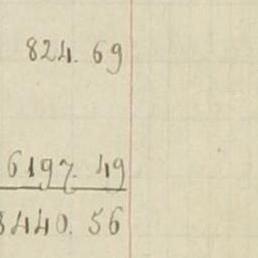 824. 69
6197. 49
3440. 56